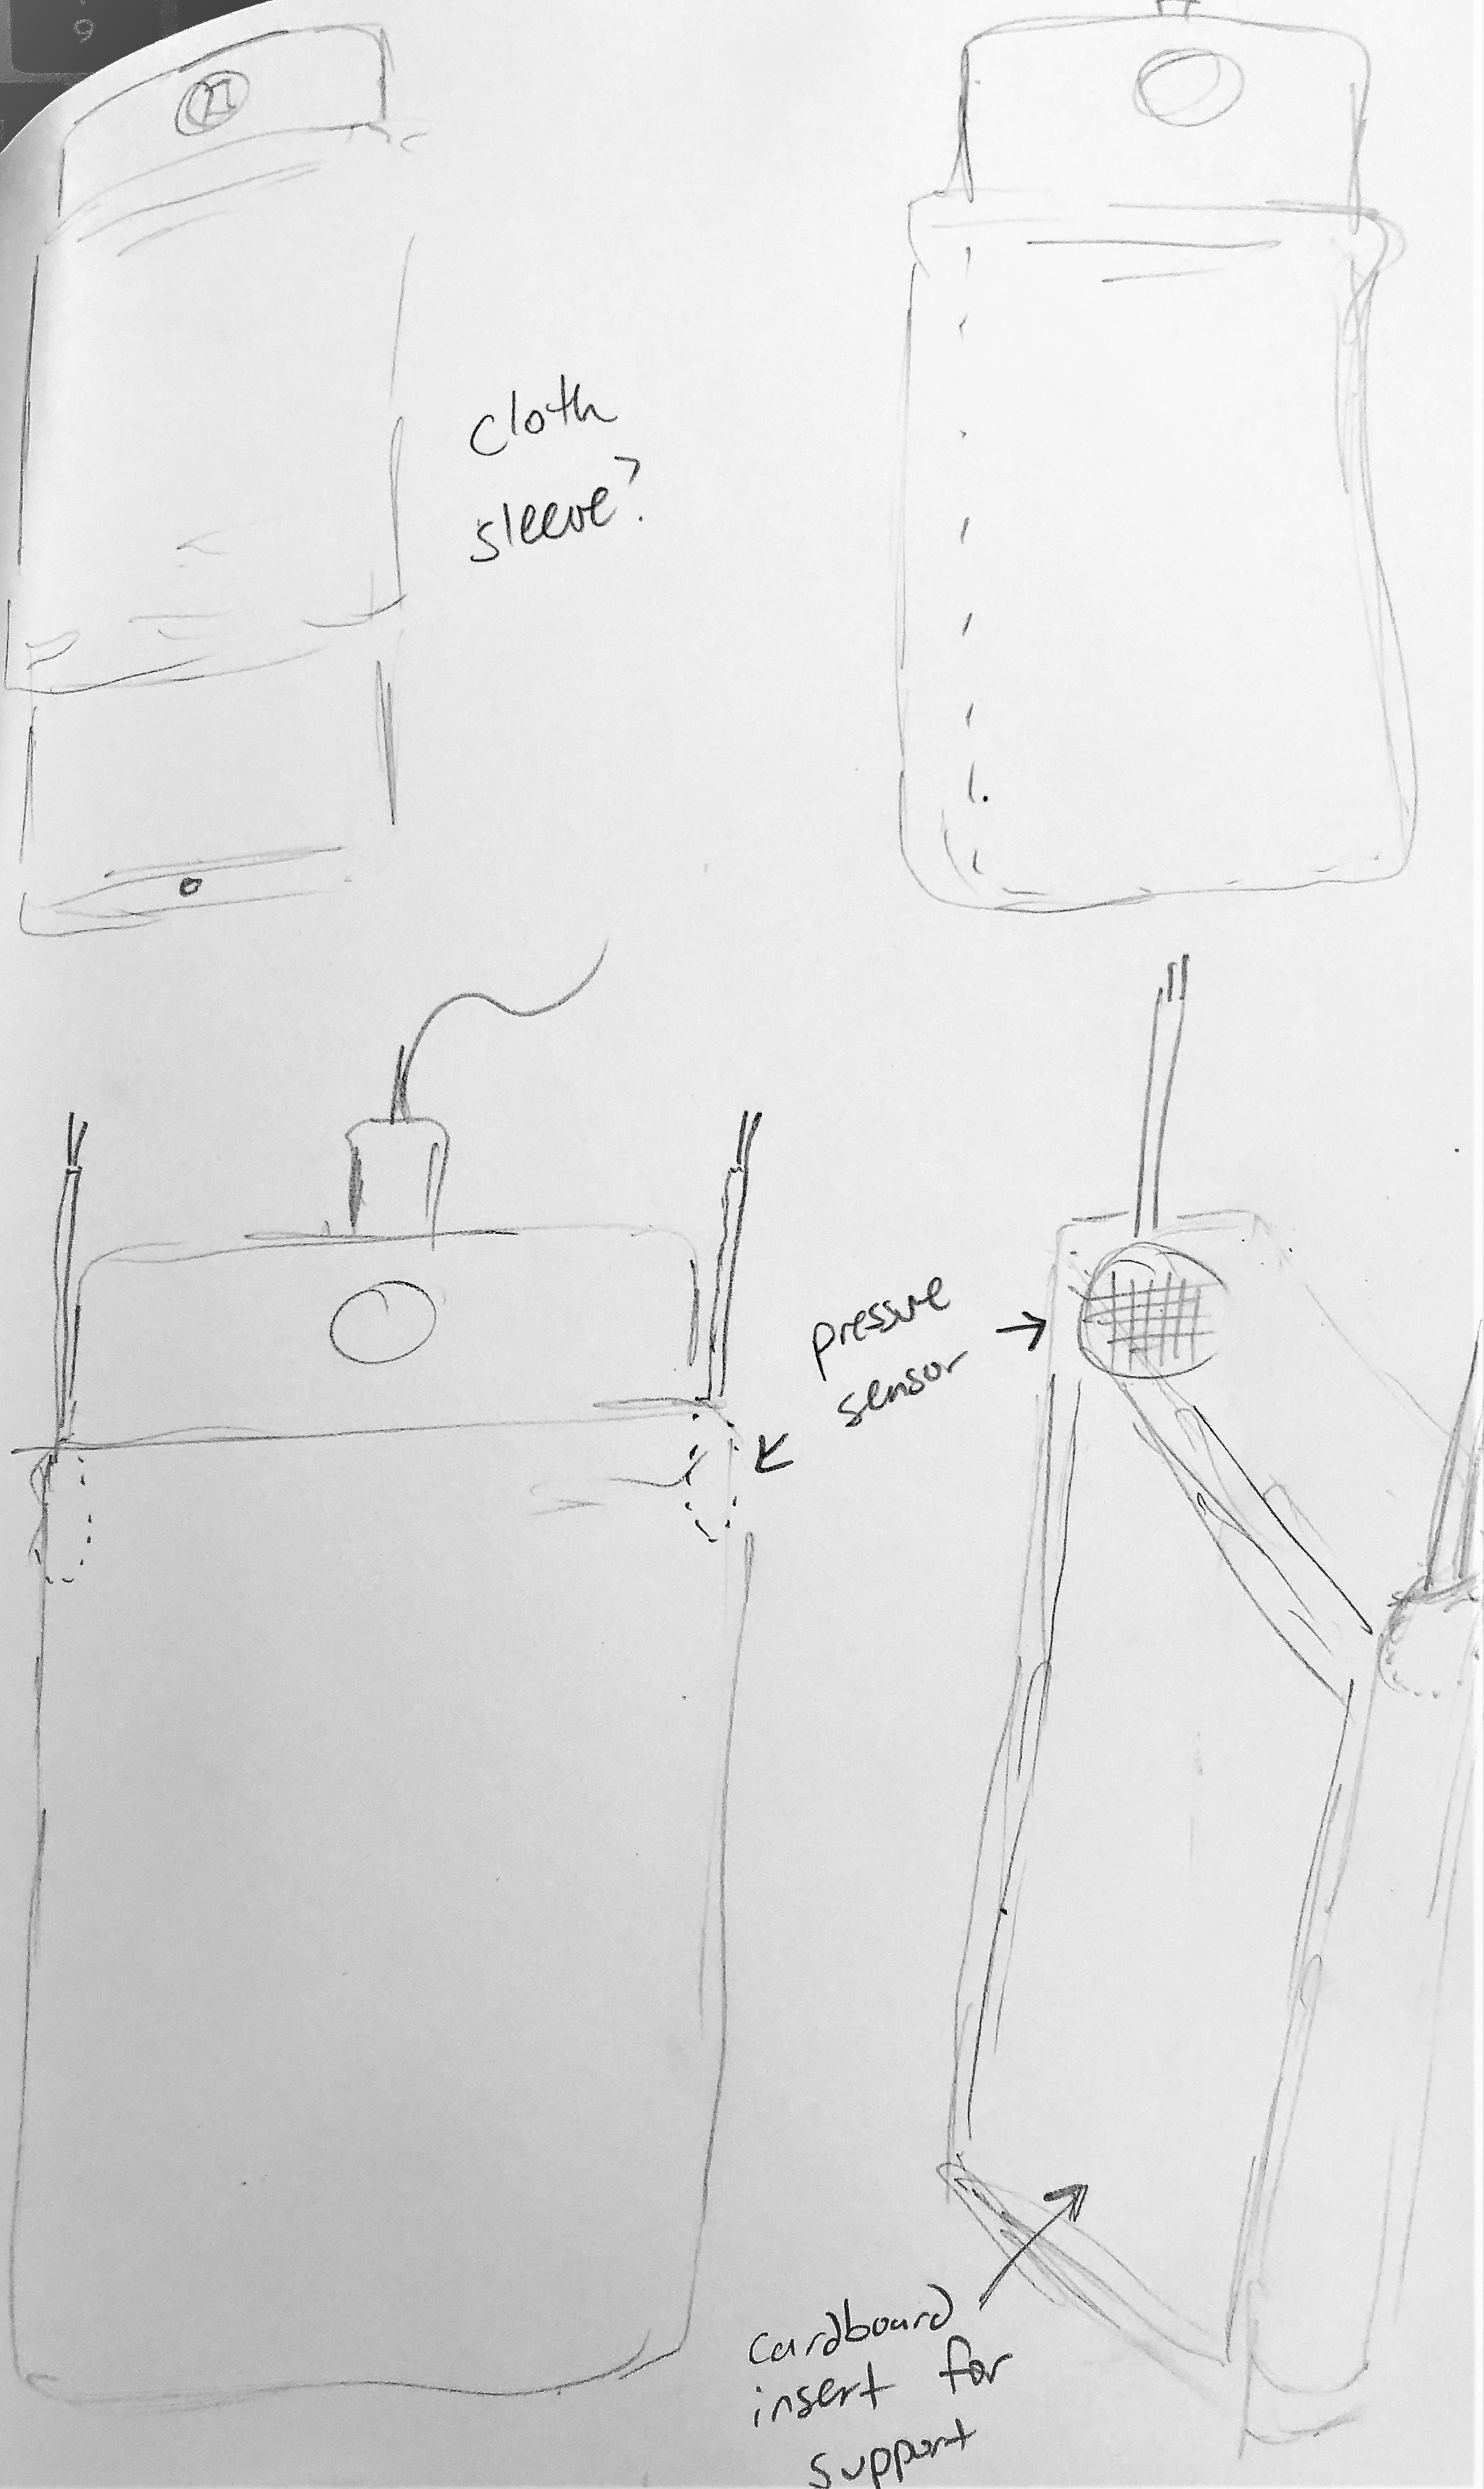 9
cloth
sleeve?
pressure
sensor
cardboard
insert for
support